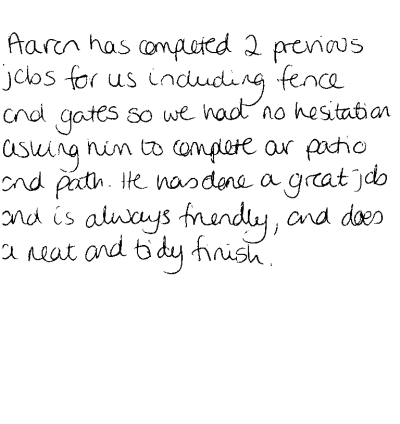 Aaron has completed 2 previous
jobs for us including fence
and gates so we had no hesitation
asking him to complete our patio
and path. He has done a great job
and is always friendly, and does
a neat and tidy finish.